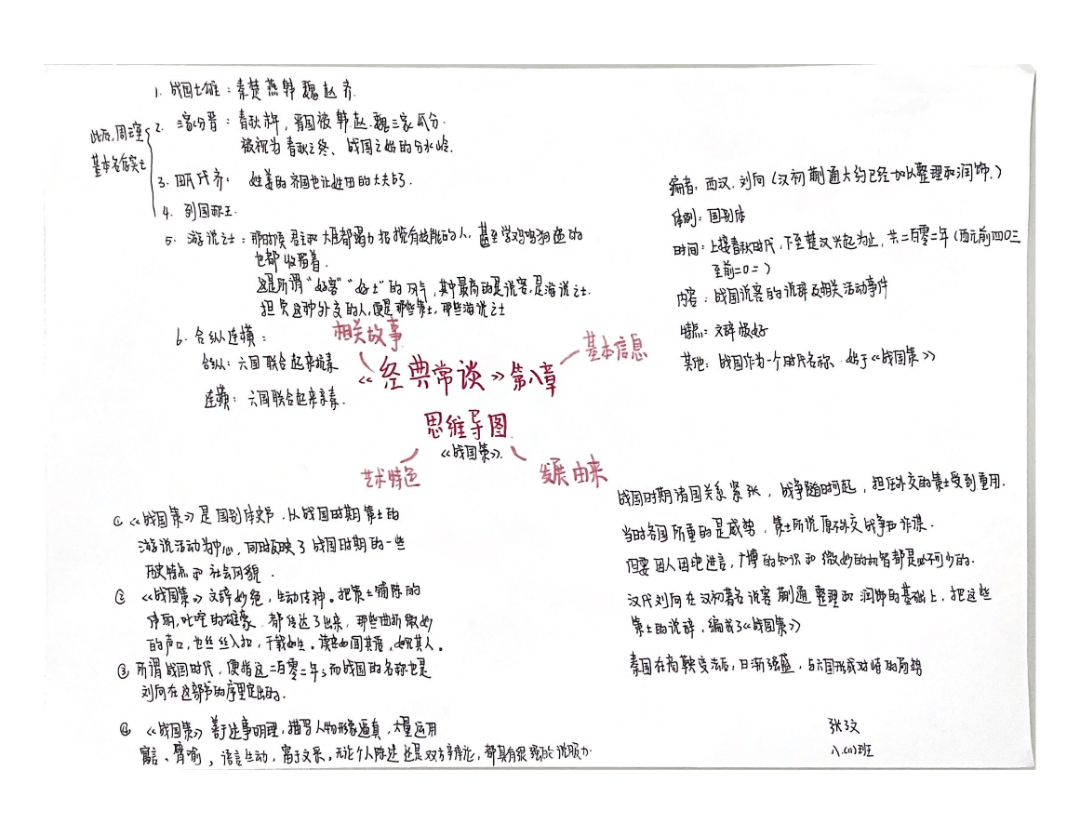 1. 战国七雄：秦楚燕韩魏赵齐.
此后,周王室
基本名存实亡
2. 三家分晋：春秋末年，晋国被韩赵.魏三家瓜分.
被视为春秋之终、战国之始的分水岭.
3. 田氏代齐：姓姜的齐国也让姓田的大夫占了.
4. 列国称王.
5. 游说之士：那时候君主和大臣都竭力招揽有技能的人，甚至学鸡鸣狗盗的
也都收留着.
这是所谓“好客”“好士”的风气，其中最高的是说客,是游说之士.
担负这种外交的人,便是那些策士,那些游说之士
6. 合纵连横：
合纵：六国联合起来抗秦
连横：六国联合起来亲秦.
相关故事
基本信息
《经典常谈》第八章
思维导图
《战国策》.
艺术特色
发展由来
编者：西汉.刘向(汉初蒯通大约已经加以整理和润饰.)
体例：国别体
时间：上接春秋时代,下至楚汉兴起为止，共二百零二年(西元前四〇三
至前二〇二)
内容：战国说客的说辞及相关活动事件
特点：文辞极好
其他：战国作为一个时代名称.始于《战国策》
① 《战国策》是国别体史书.以战国时期策士的
游说活动为中心，同时反映了战国时期的一些
历史特点和社会风貌.
② 《战国策》文辞妙绝，生动传神。把策士铺陈的
伟丽,叱咤的雄豪.都传达了出来，那些曲折微妙
的声口,也丝丝入扣，千载如生。读出如闻其语,如见其人。
③ 所谓战国时代，便指这二百零二年；而战国的名称也是
刘向在这部书的序里定出的.
④ 《战国策》善于述事明理，描写人物形象逼真，大量运用
寓言、譬喻，语言生动，富于文采,无论个人陈述还是双方辩论，都具有很强的说服力.
战国时期诸国关系紧张，战争随时可起，担任外交的策士受到重用.
当时各国所重的是威势，策士所说原不外交战争和诈谋.
但要因人因地进言，广博的知识和微妙的机智都是必不可少的.
汉代刘向在汉初著名说客蒯通整理和润饰的基础上.把这些
策士的说辞，编成了《战国策》
秦国在商鞅变法后，日渐强盛，与六国形成对峙的局势
张玟
八.(1)班